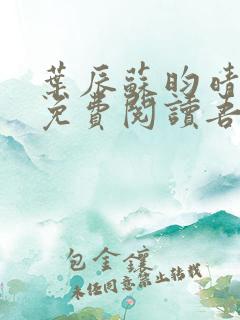 葉辰蘇昀晴
免費閱讀吾
包金鑲
未經同意禁止轉載